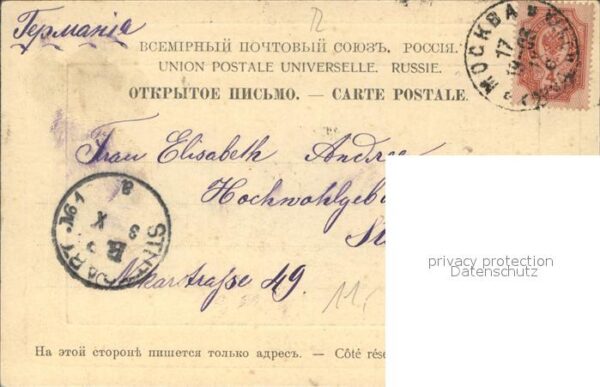 Германія
ВСЕМІРНЫЙ ПОЧТОВЫЙ СОЮЗЪ. РОССІЯ.
UNION POSTALE UNIVERSELLE. RUSSIE.
ОТКРЫТОЕ ПИСЬМО. — CARTE POSTALE.
МОСКВА
17
Frau Elisabeth Andree
Hochwohlgeb
St
STUTTGART No 1
3
X
8
Neckarstrasse 49.
11,
privacy protection
Datenschutz
На этой сторонѣ пишется только адресъ. — Côté rése